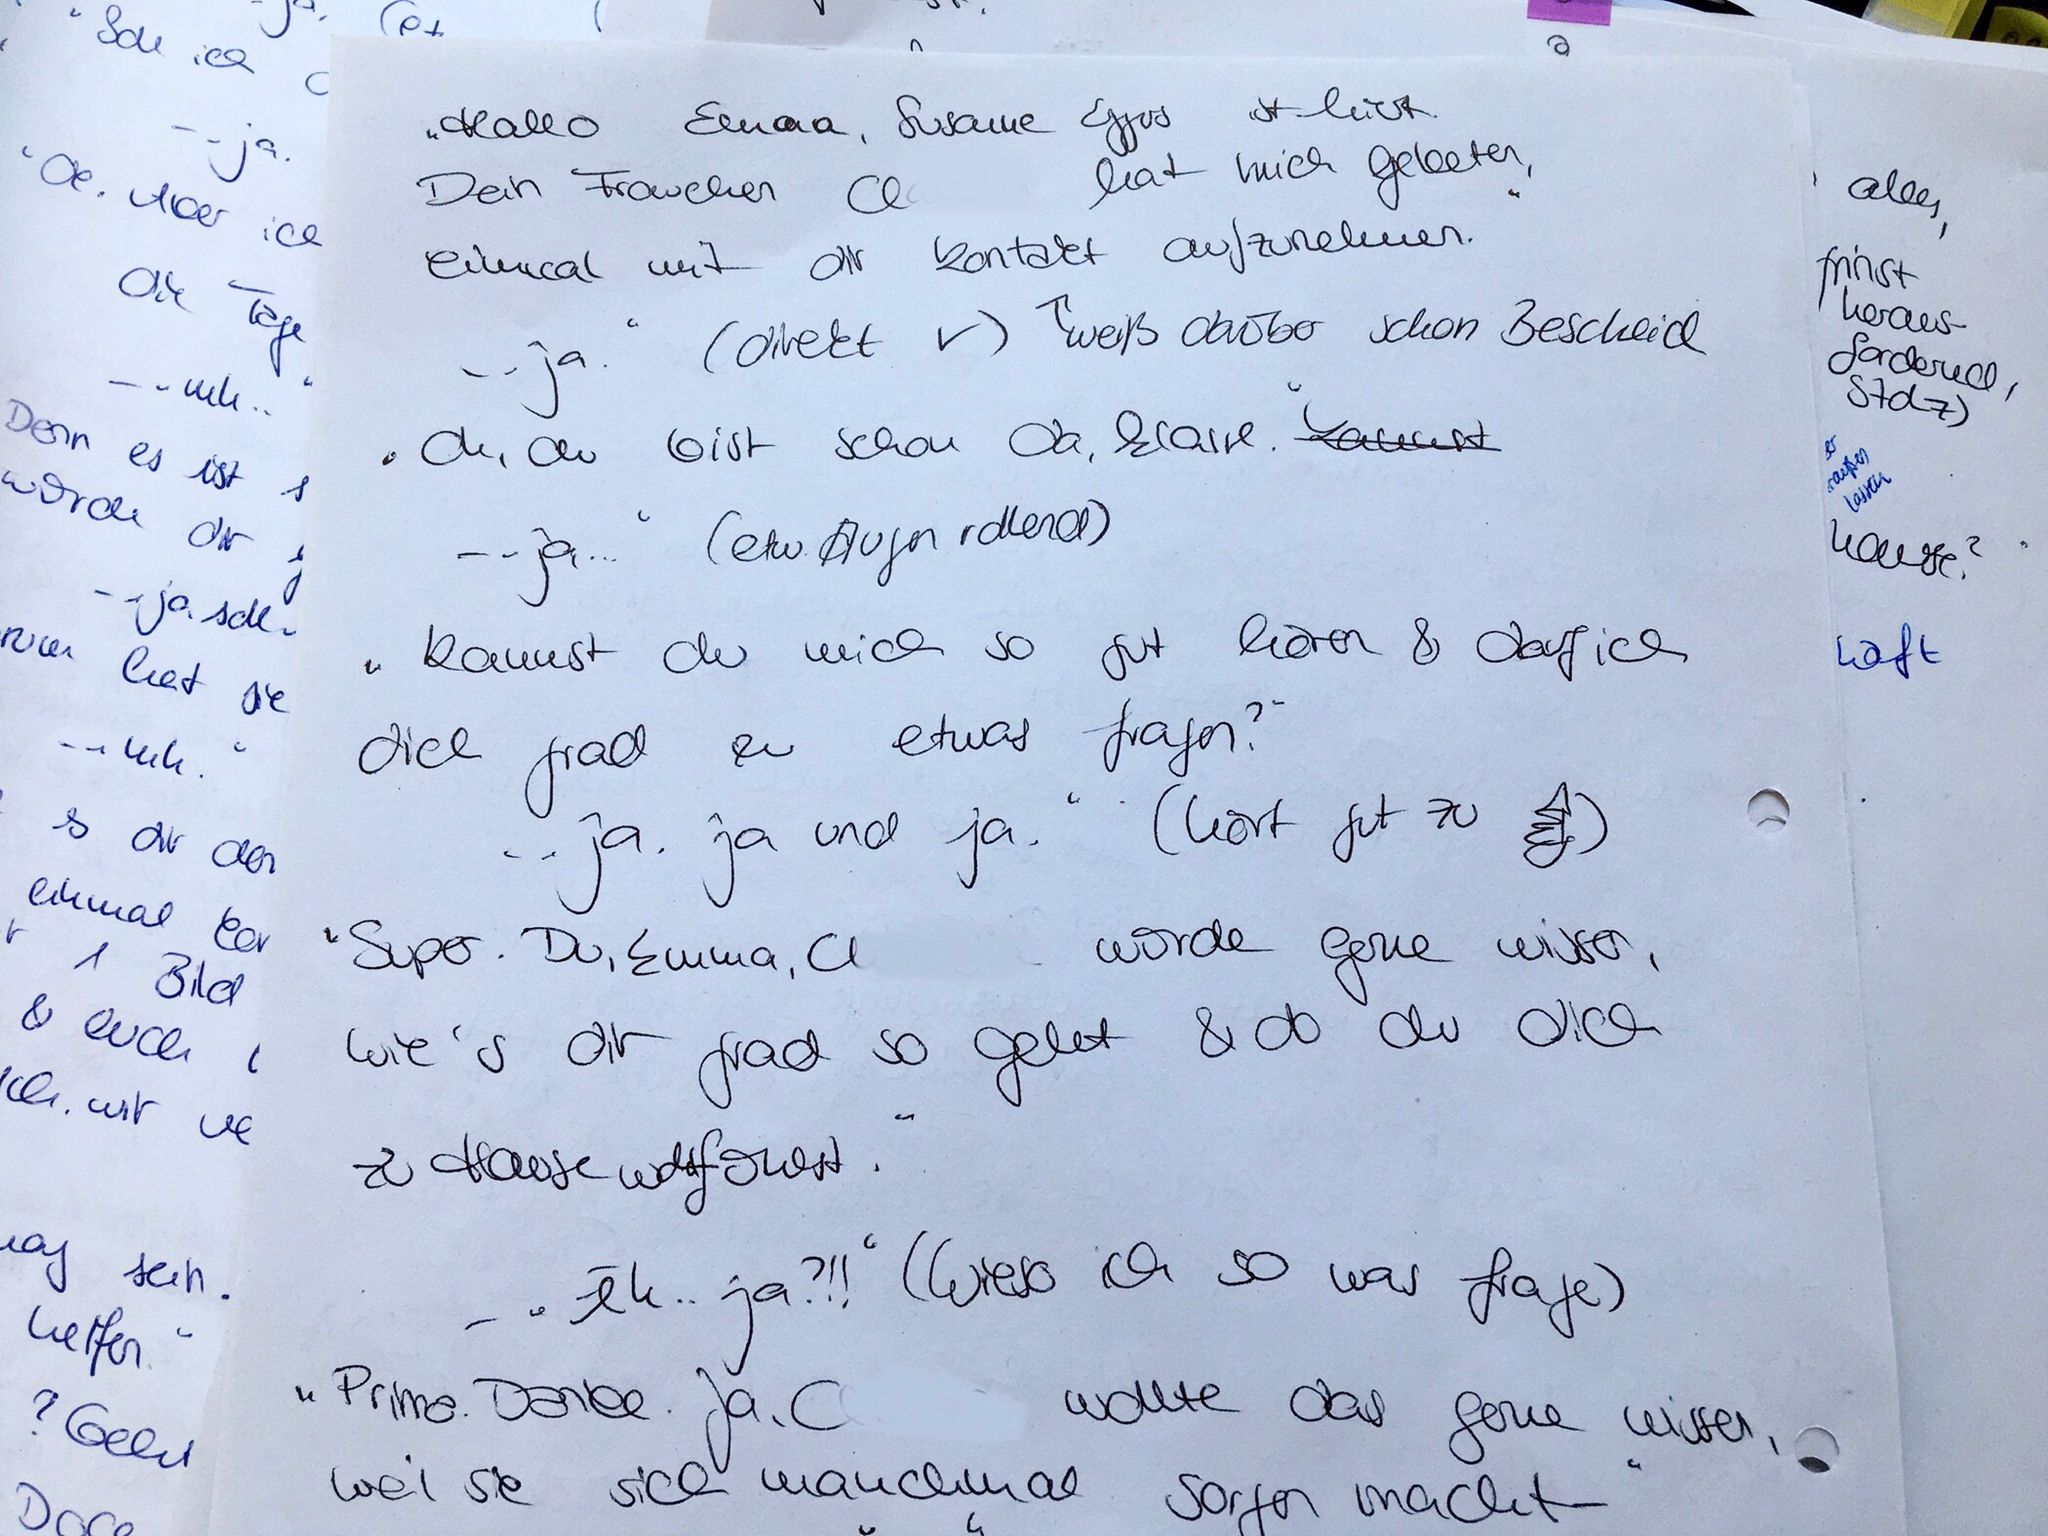 "Hallo Emma, Susanne Eggers ist hier.
Dein Frauchen Cl hat mich gebeten,
einmal mit dir Kontakt aufzunehmen."
--"ja." (direkt ✓) ↑ weiß darüber schon Bescheid
"Oh, du bist schon da, klasse." Kannst
--"ja..." (etw. Augen rollend)
"Kannst du mich so gut hören & darf ich
dich grad zu etwas fragen?"
--"ja. ja und ja." (hört gut zu)
"Super. Du, Emma, Cl würde gerne wissen,
wie's dir grad so geht & ob du dich
zu Hause wohlfühlst."
--"Äh.. ja?!!" (Wieso ich so was frage)
"Prima. Danke. Ja, C wollte das gerne wissen,
weil sie sich manchmal Sorgen macht"
ich
--ja.
"Ok. Aber ich
die Tage
--"mh.."
Denn es ist s
würde dir
--"ja. sch
hat sie
--"mh."
dir den
einmal
1 Bild
& euch
wir
sein.
helfen."
? Geht
alles,
grinst
heraus-
fordernd,
Stolz)
lassen
hause?
haft